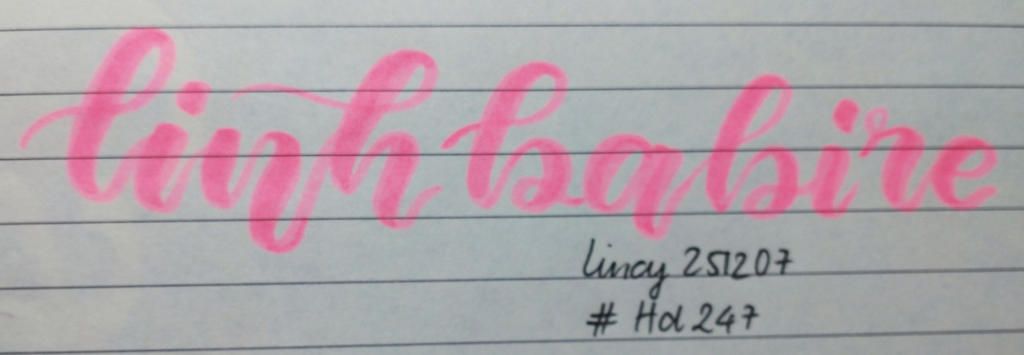 linh babire
lincy 251207
# Hd 247